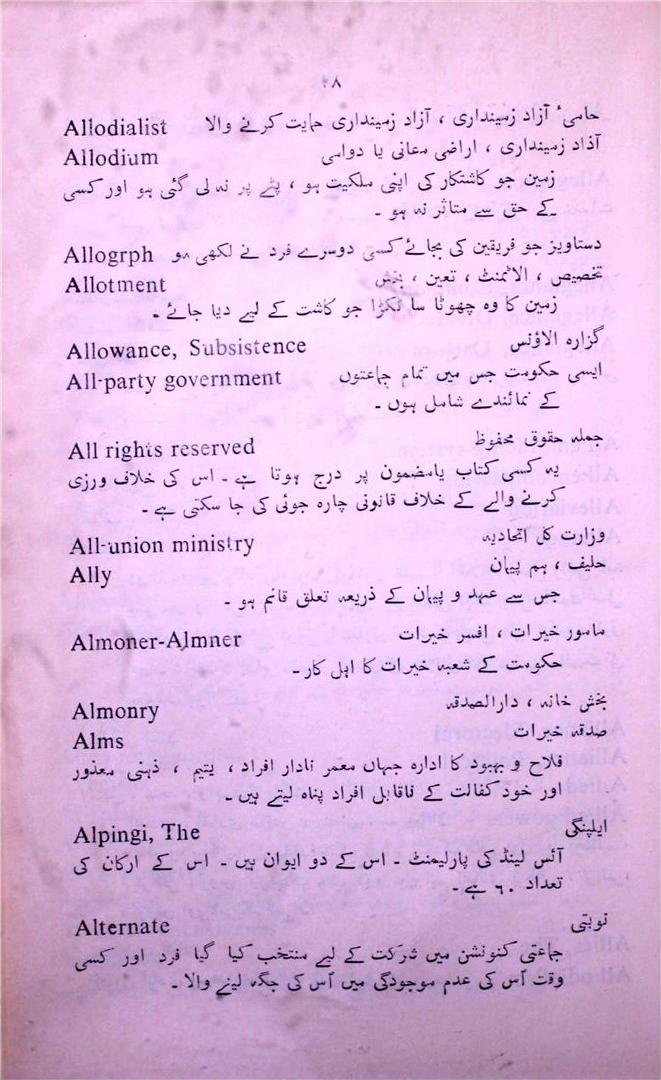 ۲۸
Allodialist حامیٔ آزاد زمینداری ، آزاد زمینداری حمایت کرنے والا
Allodium آذاد زمینداری ، اراضی معانی یا دوامی
زمین جو کاشتکار کی اپنی ملکیت ہو ، پٹے پر نہ لی گئی ہو اور کسی
کے حق سے متاثر نہ ہو ۔
Allogrph دستاویز جو فریقین کی بجائے کسی دوسرے فرد نے لکھی ہو
Allotment تخصیص ، الاٹمنٹ ، تعین ، بخش
زمین کا وہ چھوٹا سا ٹکڑا جو کاشت کے لیے دیا جائے ۔
Allowance, Subsistence گزارہ الاؤنس
All-party government ایسی حکومت جس میں تمام جماعتوں
کے نمائندے شامل ہوں ۔
All rights reserved جملہ حقوق محفوظ
یہ کسی کتاب یامضمون پر درج ہوتا ہے ۔ اس کی خلاف ورزی
کرنے والے کے خلاف قانونی چارہ جوئی کی جا سکتی ہے ۔
All-union ministry وزارت کل اتحادیہ
Ally حلیف ، ہم پیمان
جس سے عہد و پیمان کے ذریعہ تعلق قائم ہو ۔
Almoner-Almner مامور خیرات ، افسر خیرات
حکومت کے شعبہ خیرات کا اہل کار ۔
Almonry بخش خانہ ، دارالصدقہ
Alms صدقہ خیرات
فلاح و بہبود کا ادارہ جہاں معمر نادار افراد ، یتیم ، ذہنی معذور
اور خود کفالت کے ناقابل افراد پناہ لیتے ہیں ۔
Alpingi, The ایلپنگی
آئس لینڈ کی پارلیمنٹ ۔ اس کے دو ایوان ہیں ۔ اس کے ارکان کی
تعداد ۶۰ ہے ۔
Alternate نوبتی
جماعتی کنونشن میں شرکت کے لیے منتخب کیا گیا فرد اور کسی
وقت اُس کی عدم موجودگی میں اُس کی جگہ لینے والا ۔